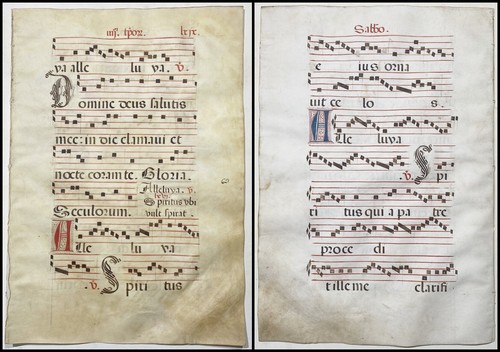 lxix.
ya alle lu ya. v.
Domine deus salutis
mee: in die clamaui et
nocte coram te. Gloria.
Alleluya. v.
Spiritus vbi
vult spirat.
Seculorum.
Alle lu ya
v. Spiri tus
Sabbo.
e ius orna
uit ce lo s.
Alle luya
v. Spi
ri tus qui a pa tre
proce di
t ille me clarifi